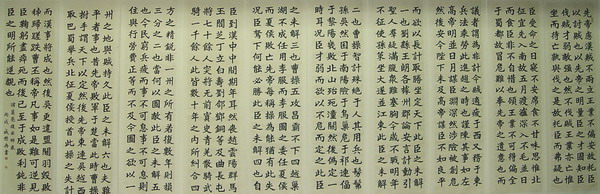 先帝慮漢賊不兩立王業不偏安故
託臣以討賊以先帝之明量臣之才固知臣
伐賊才弱敵強然不伐賊王業亦亡惟坐
而待亡孰與伐之是故託臣而弗疑也
臣受命之日寢不安席食不甘味思惟北
征宜先入南故五月渡瀘深入不毛并日
而食臣非不自惜也顧王業不可偏全於
蜀都故冒危難以奉先帝之遺意也而議
者謂為非計今賊適疲於西又務於東兵
法乘勞此進趨之時也謹陳其事如左
高帝明並日月謀臣淵深然涉險被創危
然後安今陛下未及高帝謀臣不如良平
而欲以長計取勝坐定天下此臣之未解一
也劉繇王朗各據州郡論安言計動引
聖人群疑滿腹眾難塞胸今歲不戰明年
不征使孫策坐大遂並江東此臣之未解
二也曹操智計殊絕於人其用兵也髣髴
孫吳然困於南陽險於烏巢危於祁連偪
於黎陽幾敗北山殆死潼關然後偽定一
時耳況臣才弱而欲以不危而定之此臣
之未解三也曹操五攻昌霸不下四越巢
湖不成任用李服而李服圖之委任夏侯
而夏侯敗亡先帝每稱操為能猶有此失
況臣駑下何能必勝此臣之未解四也自
臣到漢中中間期年耳然喪趙雲陽群馬
玉閻芝丁立白壽劉郃鄧銅等及曲長屯
將七十餘人突將無前賨叟青羌散騎武
騎一千餘人此皆數十年之內所糾合四
方之精銳非一州之所有若復數年則損
三分之二也當何以圖敵此臣之未解五
也今民窮兵疲而事不可息事不可息則
住與行勞費正等而不及今圖之欲以一
州之地與賊持久此臣之未解六也夫難
平者事也昔先帝敗軍於楚當此時曹操
拊手謂天下以定然後先帝東連吳越西
取巴蜀舉兵北征夏侯授首此操之失計
而漢事將成也然後吳更違盟關羽毀敗
秭歸蹉跌曹丕稱帝凡事如是難可逆見
臣鞠躬盡瘁死而後已至於成敗利鈍非
臣之明所能逆覩也